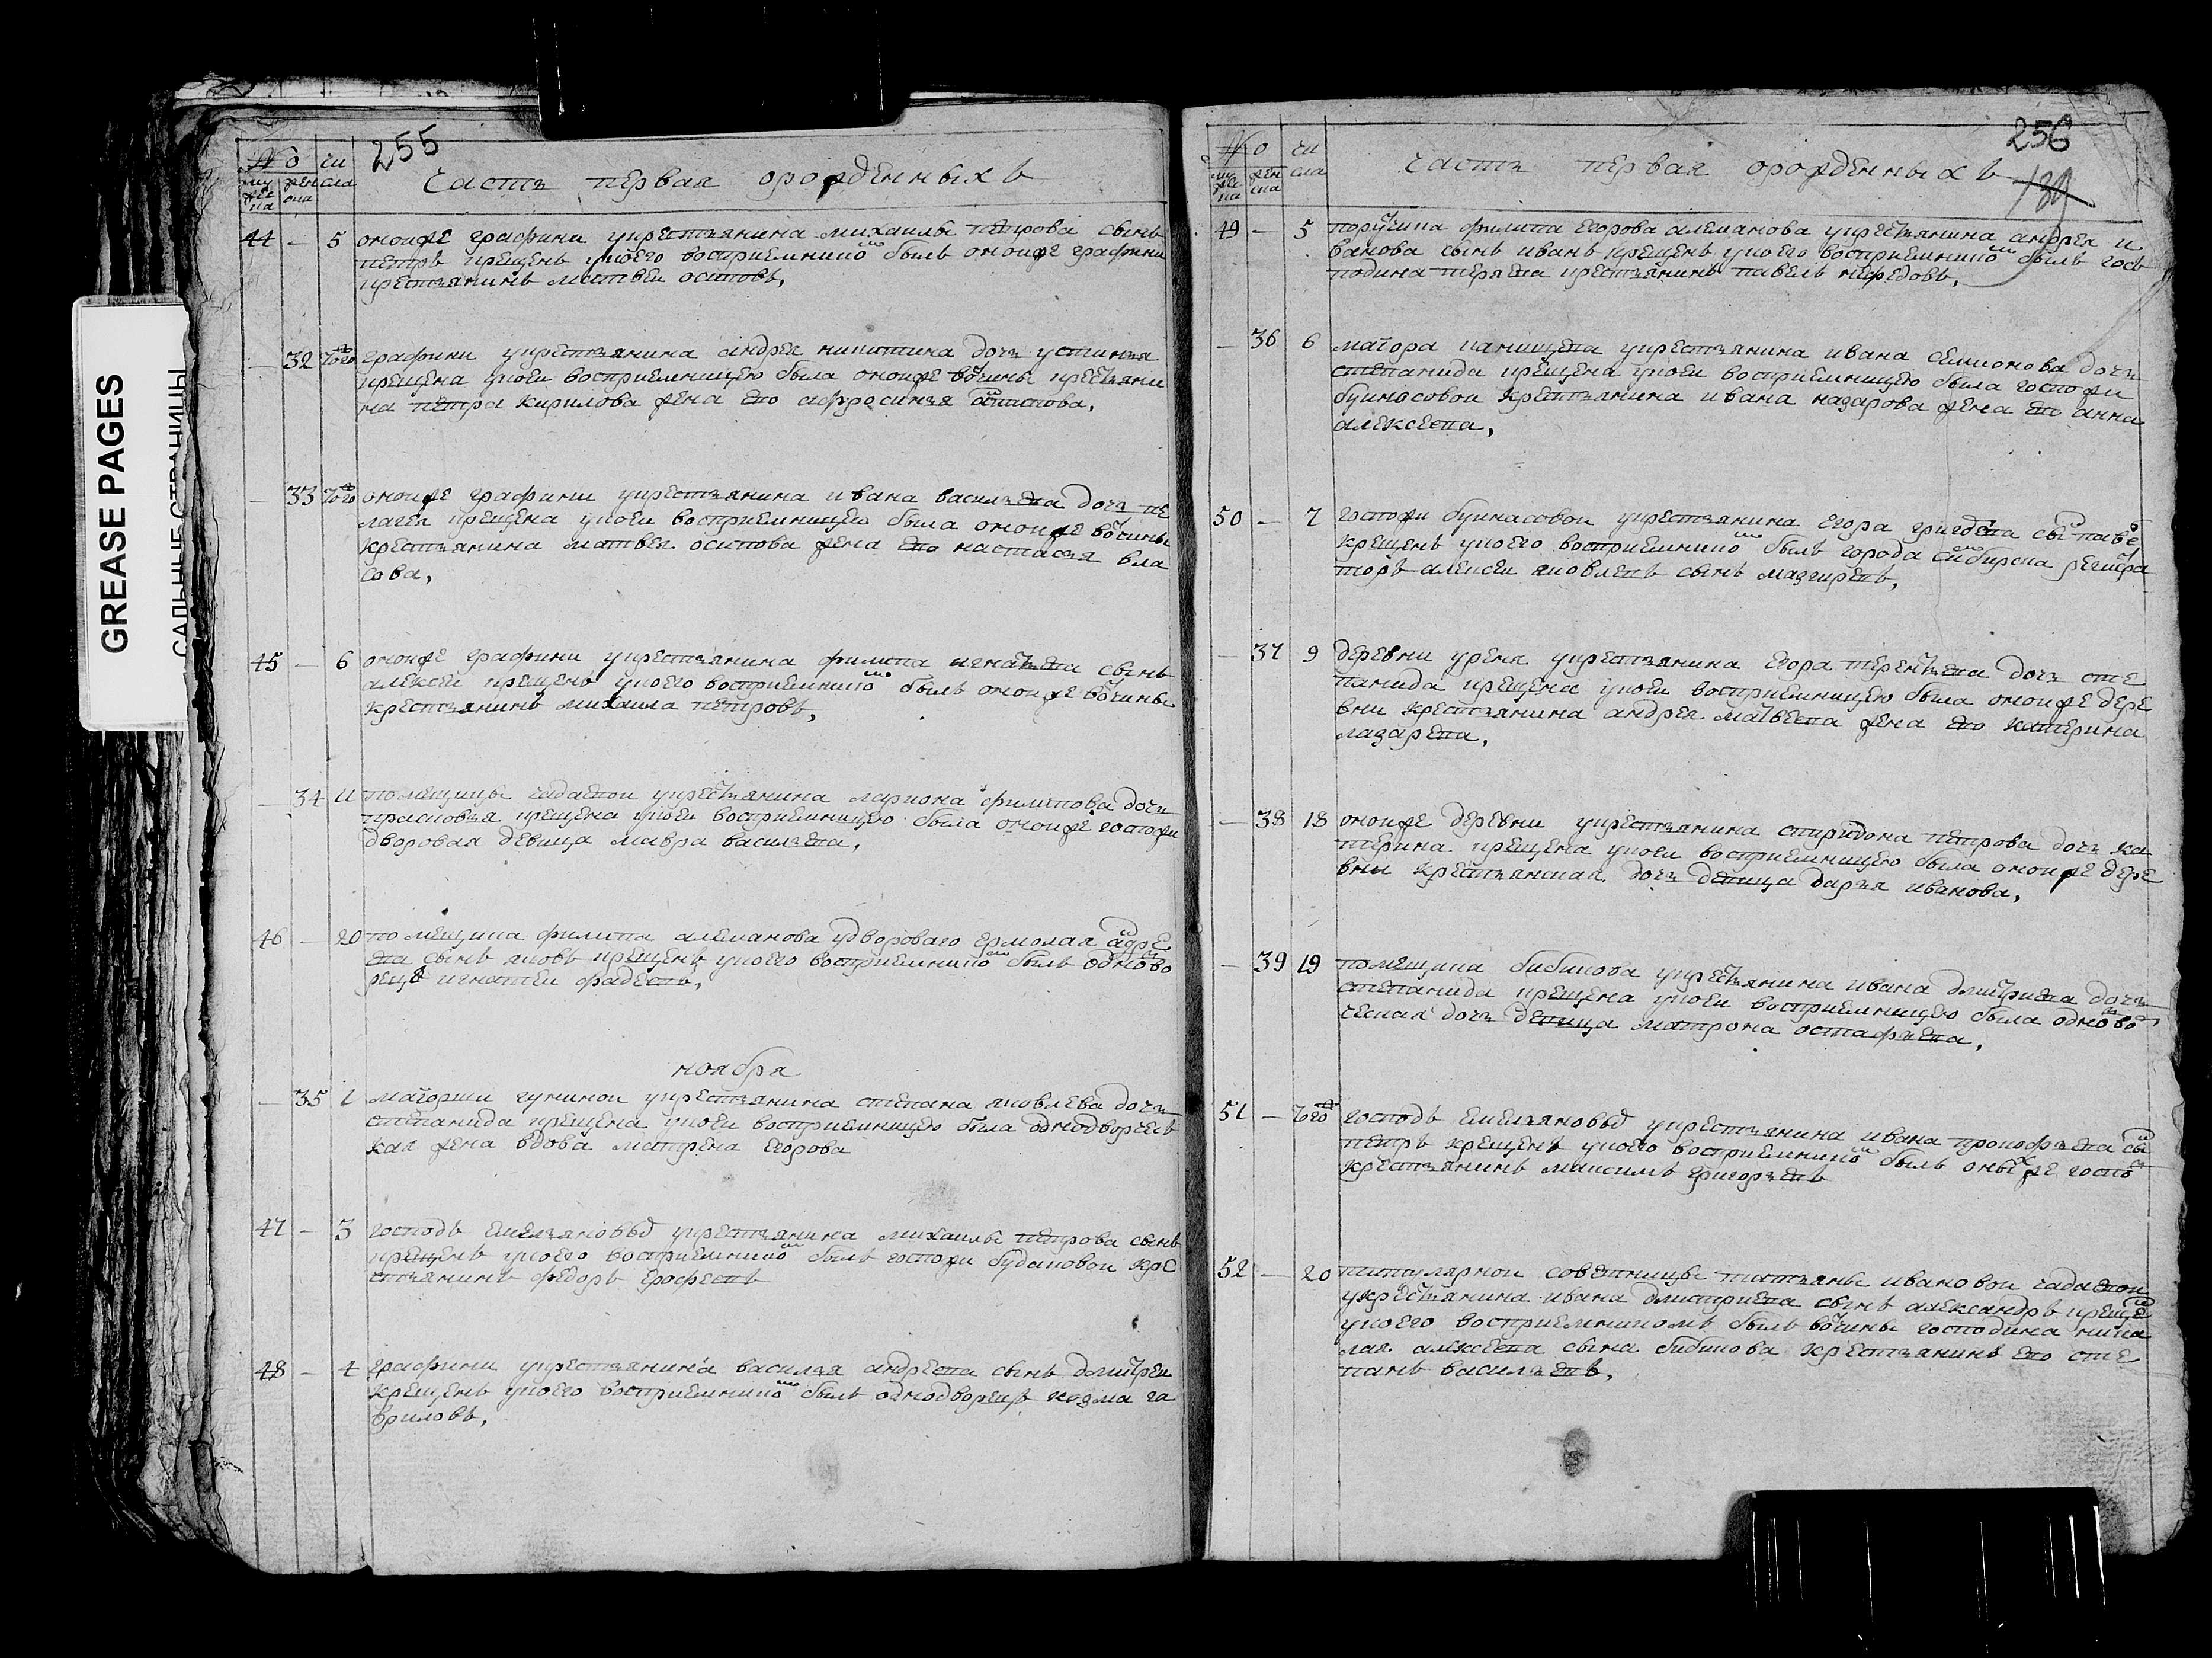 GREASE PAGES
САЛЬНЫЕ СТРАНИЦЫ
255
№ о чи
му жен сла
же ска
ска
часть первая орожденныхъ
44 – 5 оноиже графини укрестьянина михаилы петрова сынъ
петръ крещенъ укоего восприемникомъ былъ оноиже графини
крестьянинъ матвеи осиповъ,
– 32 того графини укрестьянина андрея никитина дочь устинья
крещена укоеи восприемницею была оноиже вотчины крестьяни
на петра кирилова жена ево афросинья
– 33 того оноиже графини укрестьянина ивана васильева дочь пе
лагея крещена укоеи восприемницею была оноиже вотчины
крестьянина матвея осипова жена ево настасья вла
сова,
45 – 6 оноиже графини укрестьянина филипа игнатьева сынъ
алексеи крещенъ укоего восприемникомъ былъ оноиже вотчины
крестьянинъ михаила петровъ,
– 34 11 помещицы чадаевои укрестьянина лариона филипова дочь
прасковья крещена укоеи восприемницею была оноиже госпожи
дворовая девица мавра васильева,
46 – 20 помещика филипа алеманова удворового ермолая андре
ева сынъ яковъ крещенъ укоего восприемникомъ былъ однодво
рецъ игнатеи фадеевъ,
ноября
– 35 1 маиорши гункинои укрестьянина степана яковлева дочь
степанида крещена укоеи восприемницею была однодворчес
кая жена вдова матрена егорова
47 – 3 господъ емельяновыхъ укрестьянина михаилы петрова сынъ
крещенъ укоего восприемникомъ былъ госпожи будаковои кре
стьянинъ федоръ ерофеевъ
48 – 4 графини укрестьянина василья андреева сынъ дмитреи
крещенъ укоего восприемникомъ былъ однодворецъ козма га
вриловъ,
256
139
№ о чи
му жен сла
же ска
ска
часть первая орожденныхъ
49 – 5 порутчика филипа егорова алеманова укрестьянина андрея и
ванова сынъ иванъ крещенъ укоего восприемникомъ былъ гос
подина терлева крестьянинъ павелъ нефедовъ,
– 36 6 маиора укрестьянина ивана семионова дочь
степанида крещена укоеи восприемницею была госпожи
крестьянина ивана назарова жена ево анна
алексеева,
50 – 7 госпожи укрестьянина егора григорьева сынъ павелъ
крещенъ укоего восприемникомъ былъ города синбирска регистра
торъ алексеи яковлевъ сынъ
– 37 9 деревни уреня укрестьянина егора терентьева дочь сте
панида крещена укоеи восприемницею была оноиже дере
вни крестьянина андрея матвеева жена ево катерина
лазарева,
– 38 18 оноиже деревни укрестьянина спиридона петрова дочь ка
терина крещена укоеи восприемницею была оноиже дере
вни крестьянская дочь девица дарья иванова,
– 39 19 помещика бибикова укрестьянина ивана дмитриева дочь
степанида крещена укоеи восприемницею была одноdвор
ческая дочь девица матрона остафьева,
51 – того господъ емельяновыхъ укрестьянина ивана прокофьева сынъ
петръ крещенъ укоего восприемникомъ былъ оныхже господъ
крестьянинъ максимъ григорьевъ
52 – 20 титулярнои советницы татьяны ивановои чадаевои
укрестьянина ивана дмитриева сынъ александръ крещенъ
укоего восприемникомъ былъ вотчины господина ника
лая алексеева сына бибикова крестьянинъ ево сте
панъ васильевъ,